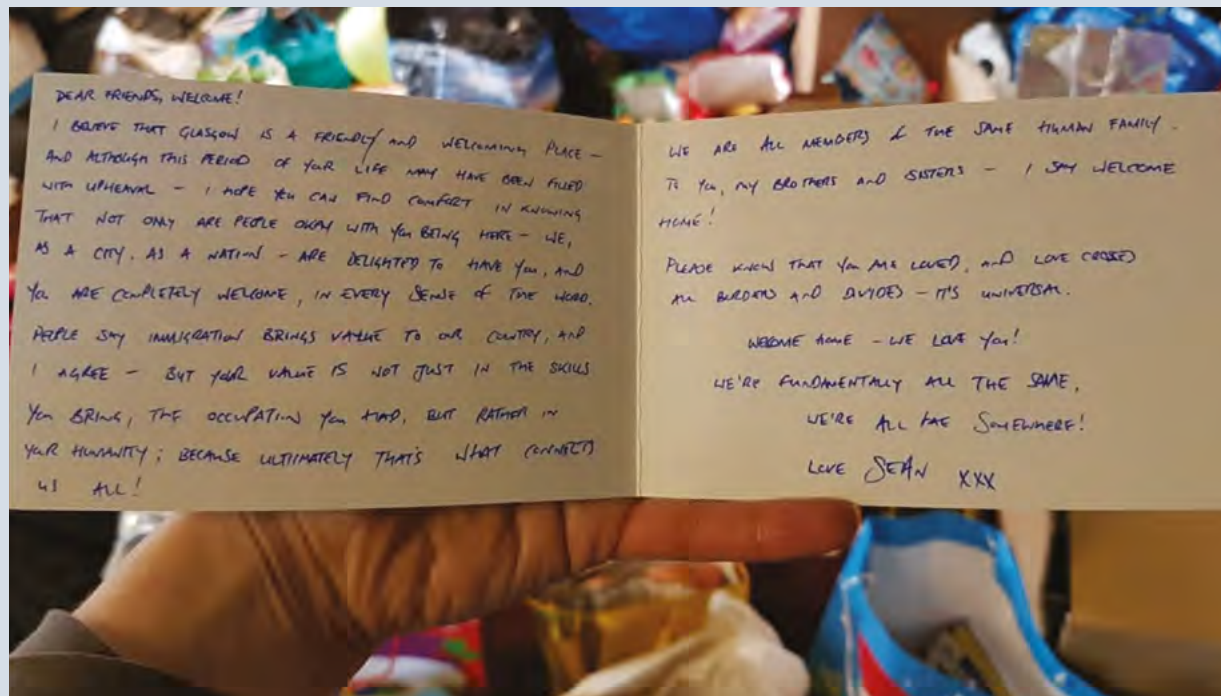 DEAR FRIENDS, WELCOME!
I BELIEVE THAT GLASGOW IS A FRIENDLY AND WELCOMING PLACE –
AND ALTHOUGH THIS PERIOD OF YOUR LIFE MAY HAVE BEEN FILLED
WITH UPHEAVAL – I HOPE YOU CAN FIND COMFORT IN KNOWING
THAT NOT ONLY ARE PEOPLE OKAY WITH YOU BEING HERE – WE,
AS A CITY, AS A NATION – ARE DELIGHTED TO HAVE YOU, AND
YOU ARE COMPLETELY WELCOME, IN EVERY SENSE OF THE WORD.
PEOPLE SAY IMMIGRATION BRINGS VALUE TO OUR COUNTRY, AND
I AGREE – BUT YOUR VALUE IS NOT JUST IN THE SKILLS
YOU BRING, THE OCCUPATION YOU HAD, BUT RATHER IN
YOUR HUMANITY; BECAUSE ULTIMATELY THAT'S WHAT CONNECTS
US ALL!
WE ARE ALL MEMBERS OF THE SAME HUMAN FAMILY.
TO YOU, MY BROTHERS AND SISTERS – I SAY WELCOME
HOME!
PLEASE KNOW THAT YOU ARE LOVED, AND LOVE CROSSES
ALL BORDERS AND DIVIDES – IT'S UNIVERSAL.
WELCOME HOME – WE LOVE YOU!
WE'RE FUNDAMENTALLY ALL THE SAME,
WE'RE ALL SOMEWHERE!
LOVE SEAN XXX